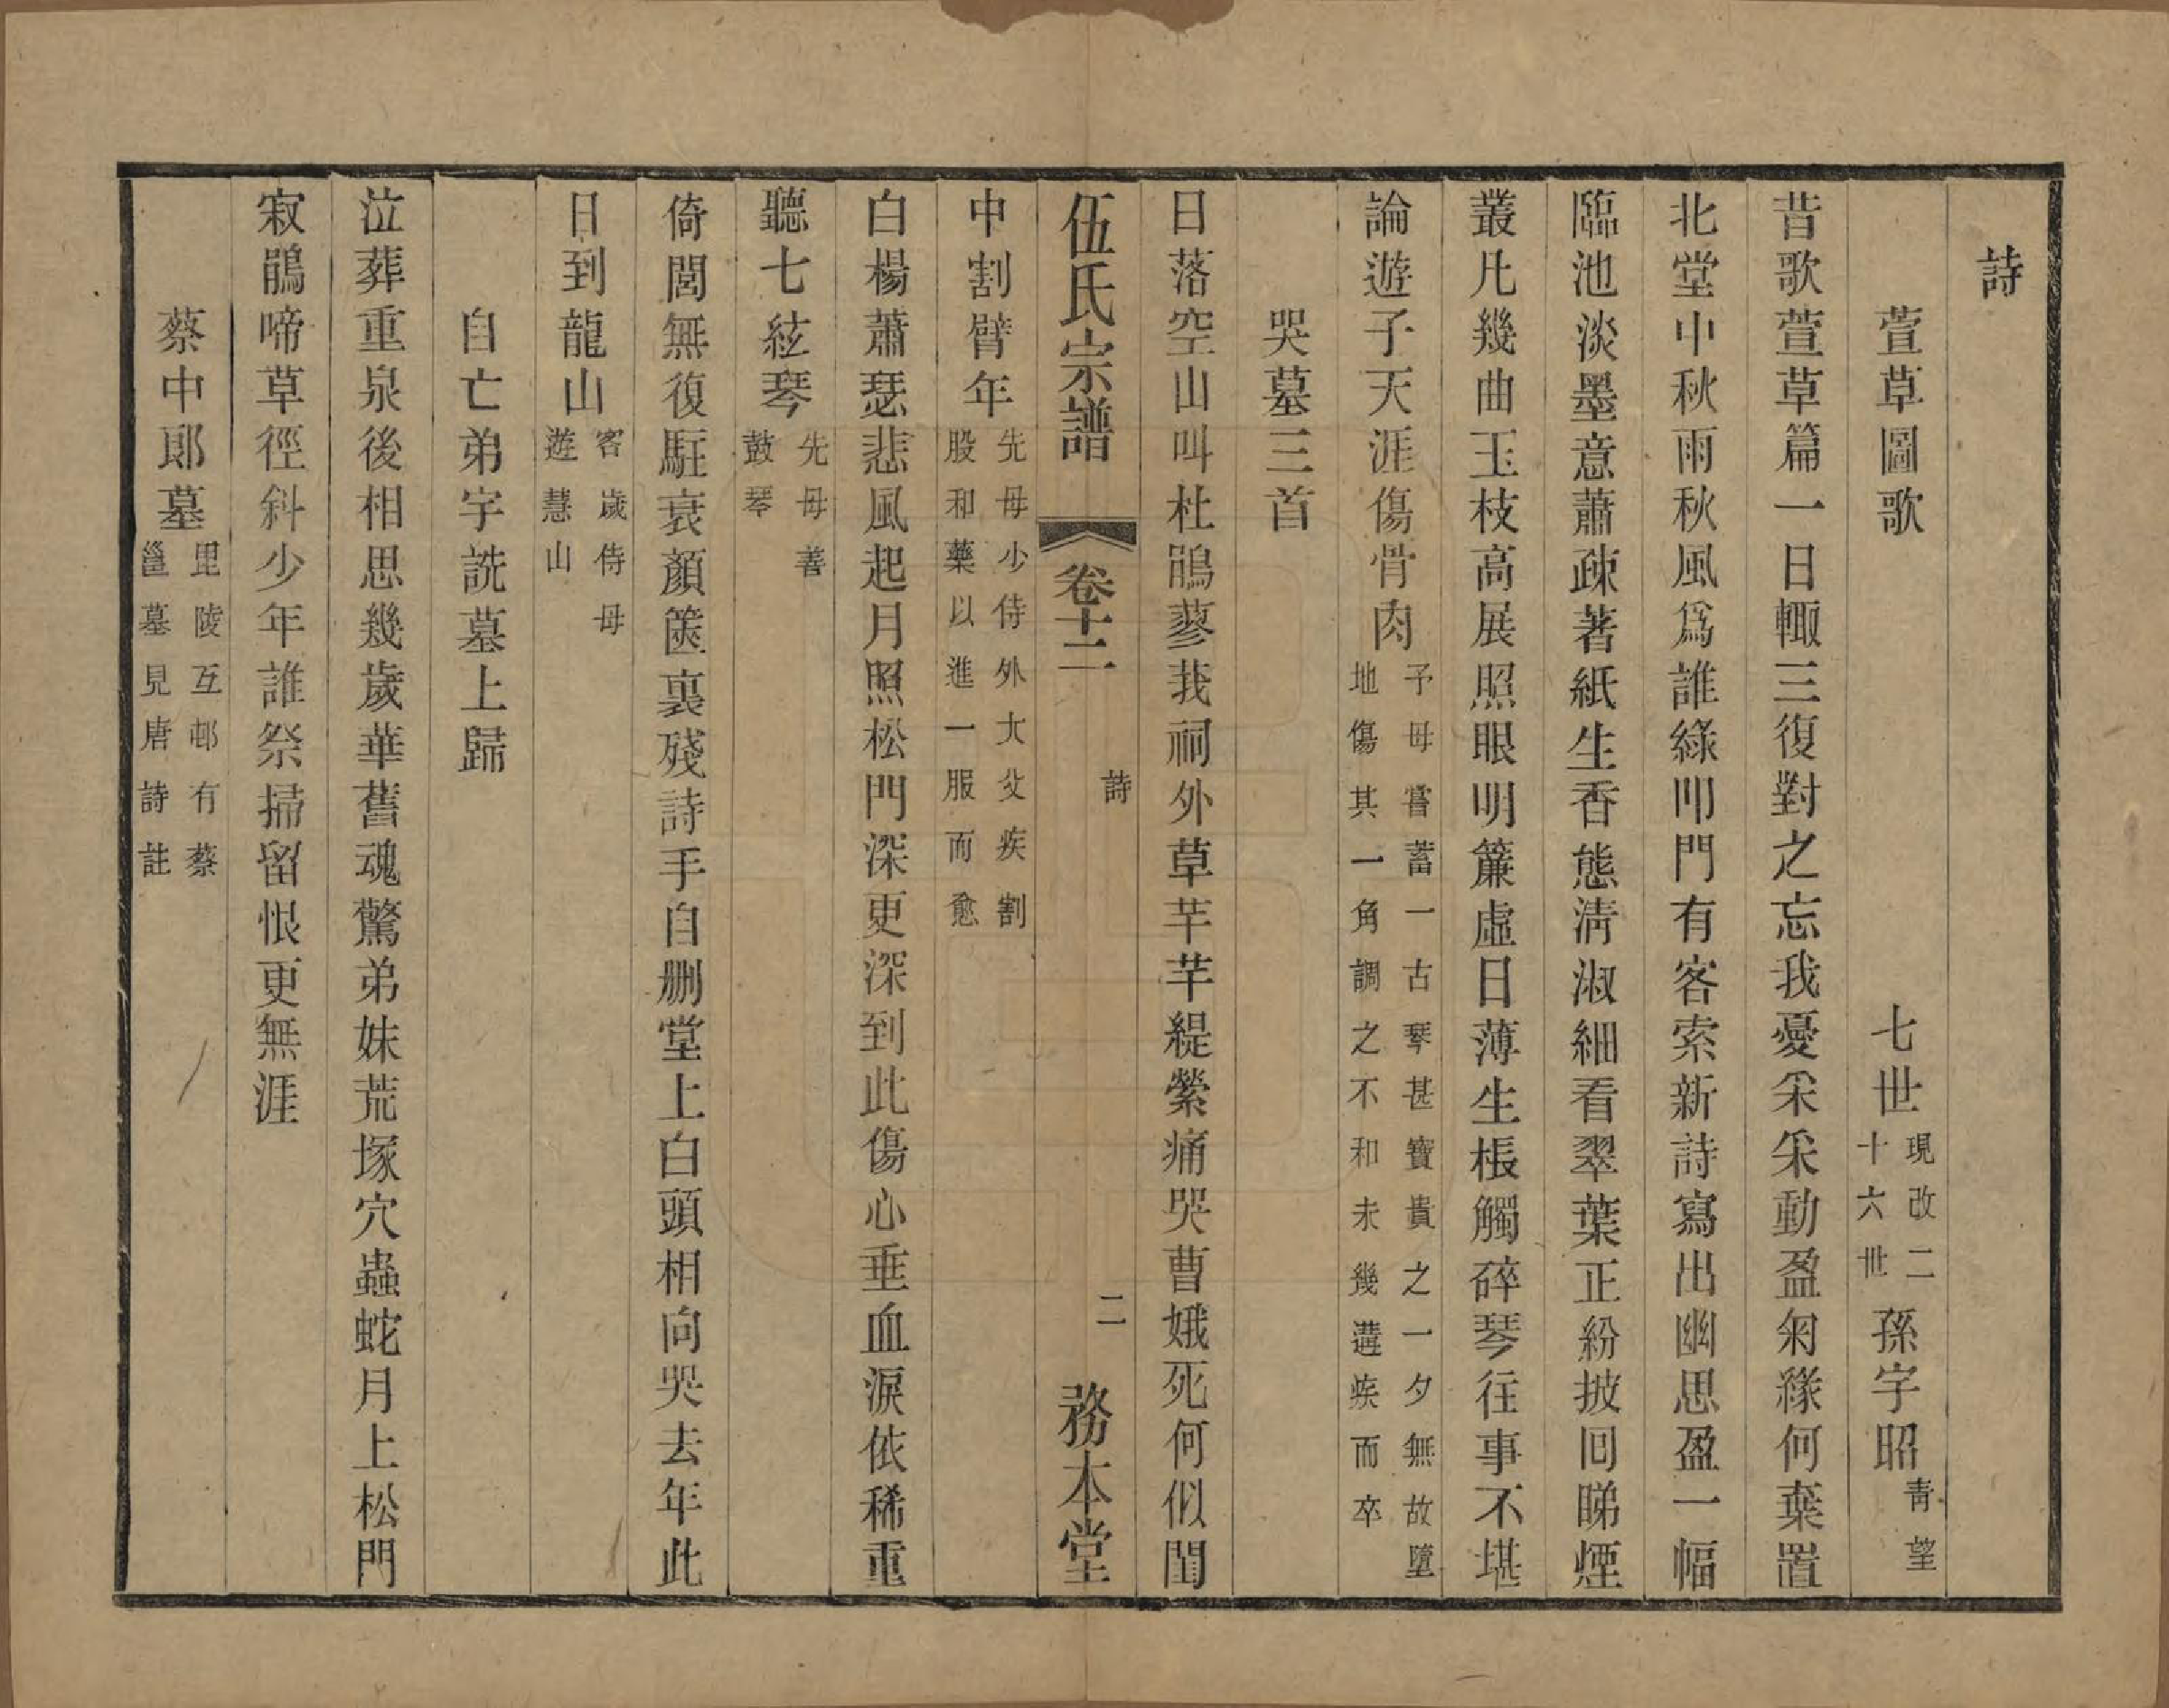 詩
萱草圖歌　七世現改二十六世孫字昭青望
昔歌萱草篇一日輙三復對之忘我憂采采動盈匊緣何棄置
北堂中秋雨秋風爲誰綠叩門有客索新詩寫出幽思盈一幅
臨池淡墨意蕭疎著紙生香態淸淑細看翠葉正紛披囘睇煙
叢凡幾曲玉枝高展照眼明簾虛日薄生棖觸碎琴往事不堪
論遊子天涯傷骨肉予母嘗蓄一古琴甚寶貴之一夕無故墮地傷其一角調之不和未幾遘疾而卒
哭墓三首
日落空山叫杜鵑蓼莪祠外草芊芊緹縈痛哭曹娥死何似閨
伍氏宗譜　卷十二　詩　二　務本堂
中割臂年先母少侍外大父疾割股和藥以進一服而愈
白楊蕭瑟悲風起月照松門深更深到此傷心垂血淚依稀重
聽七絃琴先母善鼓琴
倚閭無復駐衰顏篋裏殘詩手自删堂上白頭相向哭去年此
日到龍山客歲侍母遊慧山
自亡弟宇詵墓上歸
泣葬重泉後相思幾歲華舊魂驚弟妹荒塚穴蟲蛇月上松門
寂鵑啼草徑斜少年誰祭掃留恨更無涯
蔡中郎墓毘陵互邨有蔡邕墓見唐詩註